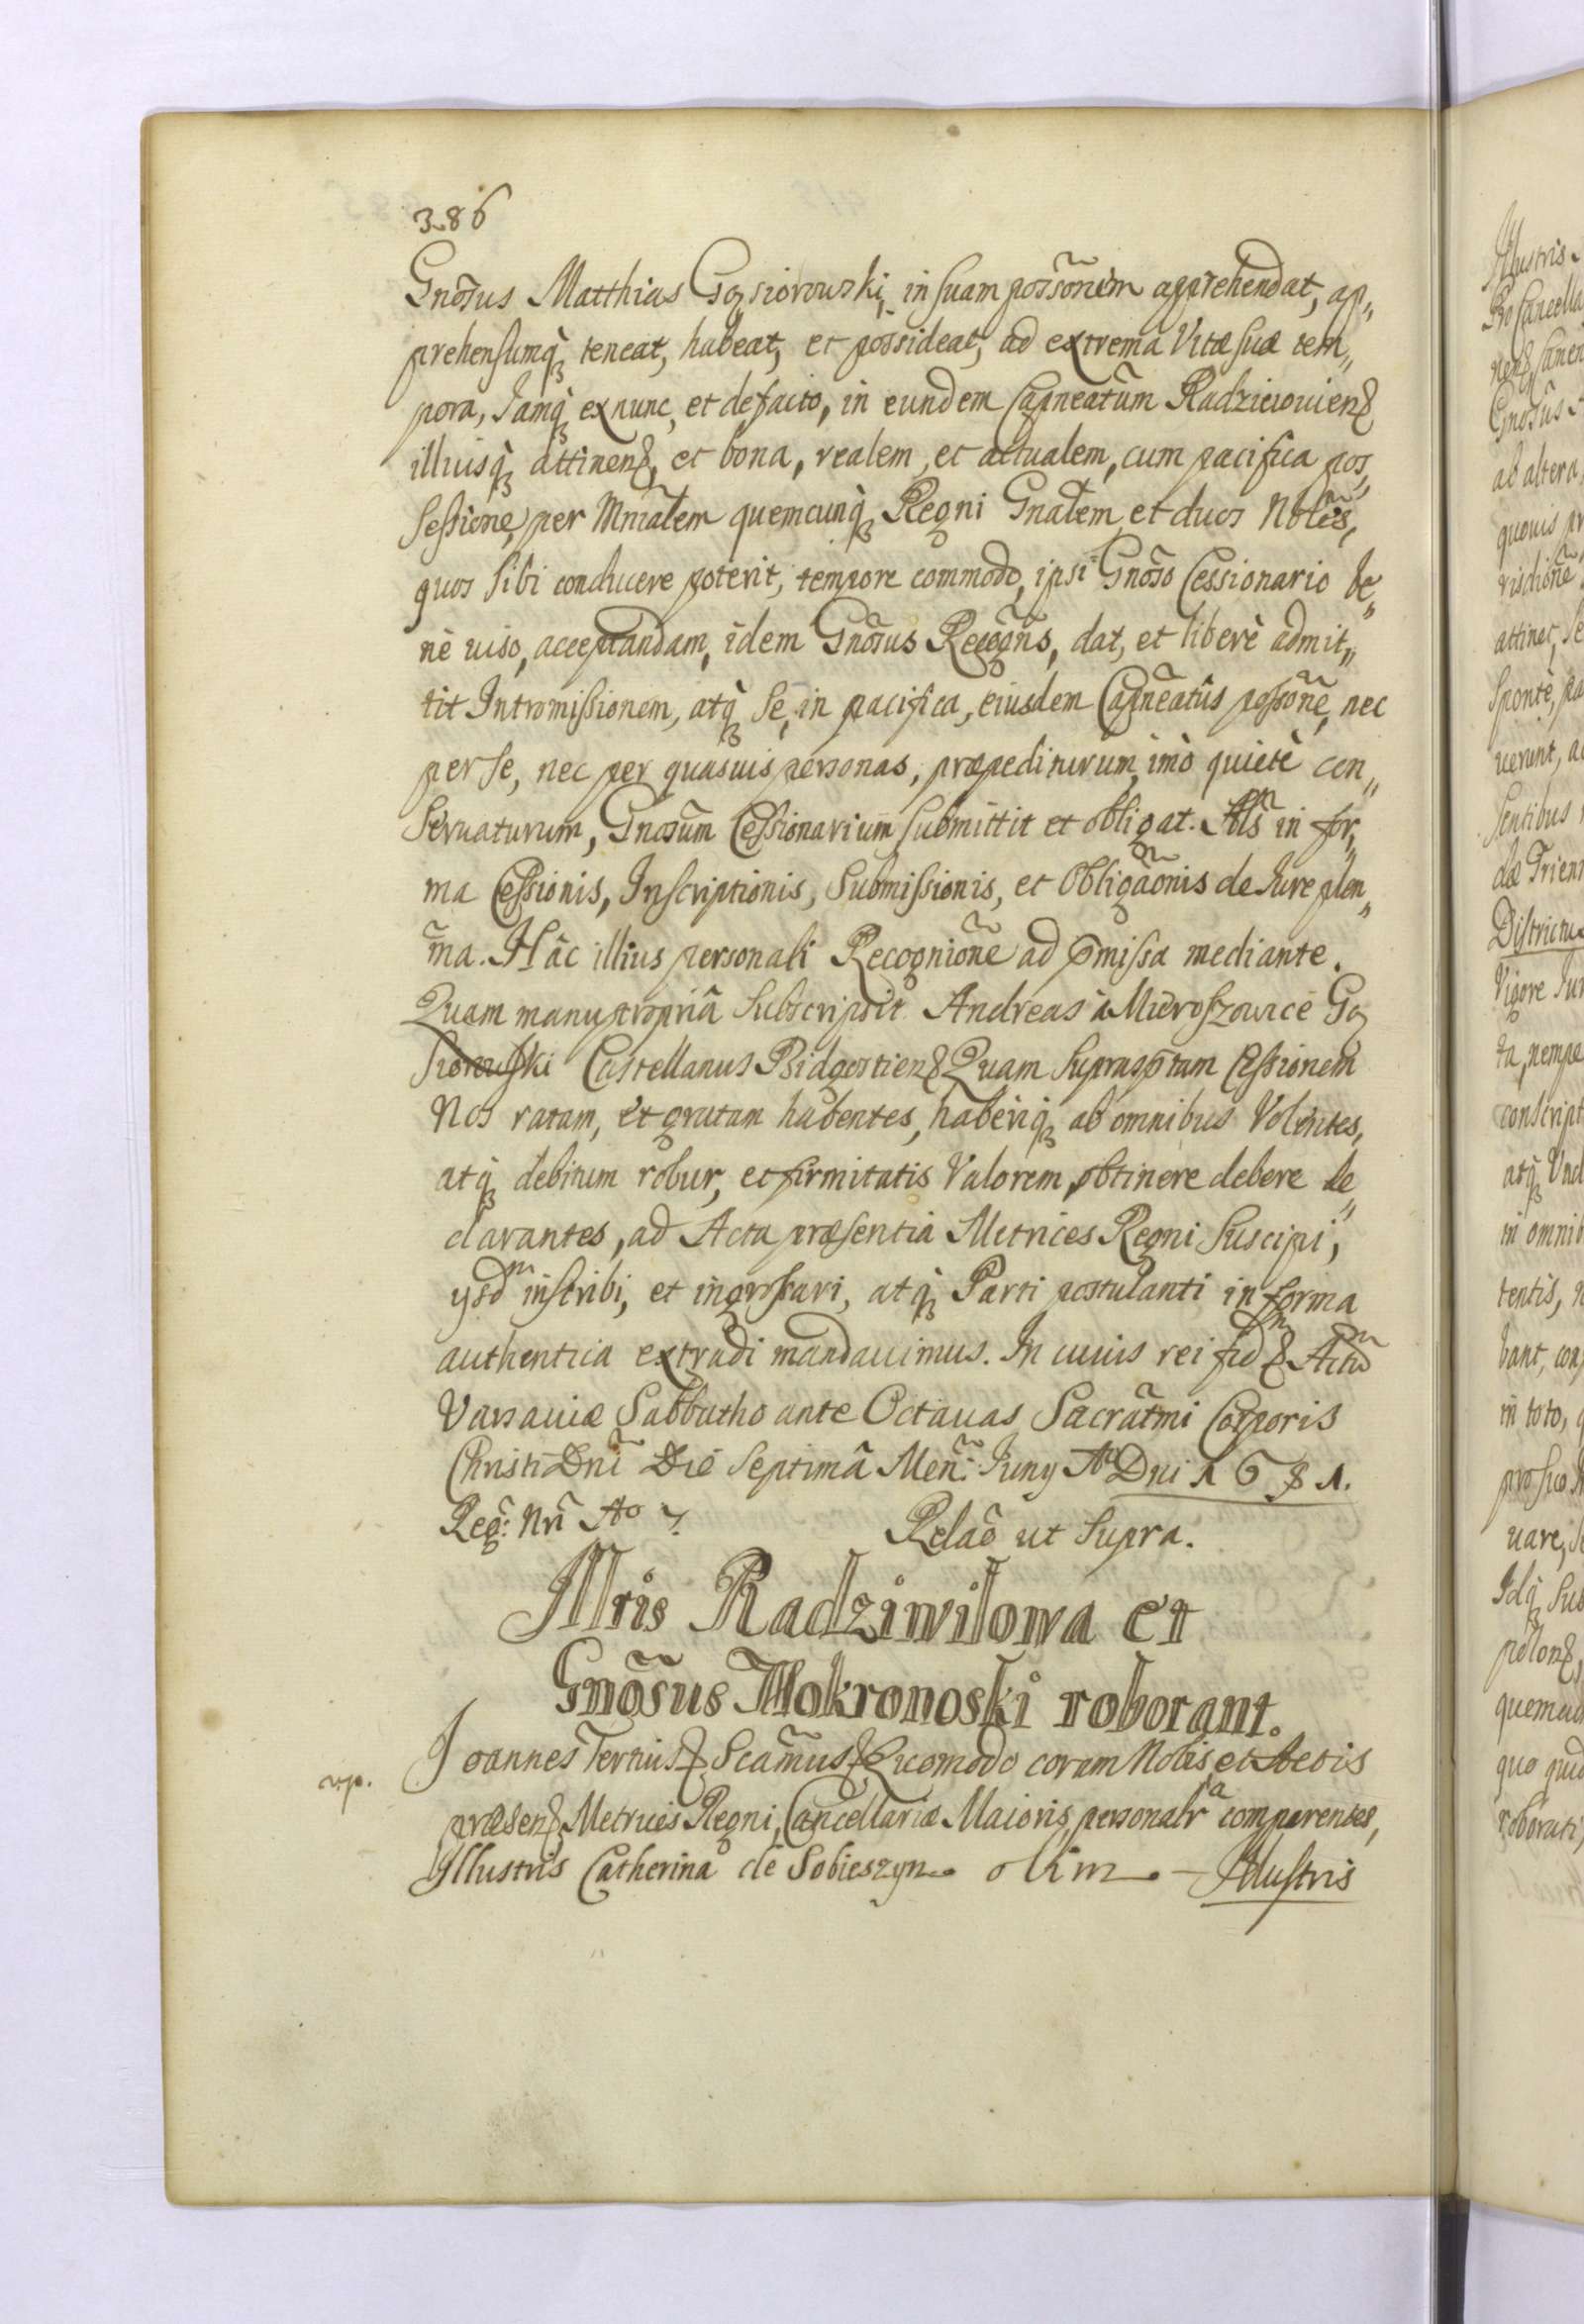 386
Gnõsus Matthias Gąsiorowski, in suam possõnem apprehendat, ap„
prehensumq̀ꝫ teneat, habeat, et possideat, ad extrema Vitæ suæ tem„
pora, Jamq̀ꝫ ex nunc, et de facto, in eundem Capneatũm Radzieiouienꝫ
illiusq̀ꝫ attinenꝫ, et bona, realem, et actualem, cum pacifica pos„
sessione, per Mniãlem quemcunq̀ꝫ Regni Gnãlem, et duos Nobĩles,
quos sibi conducere poterit, tempore commodo, ipsi Gnõso Cessionario be„
nè uiso, acceptandam, idem Gnõsus Recogñs, dat, et liberè admit„
tit Intromissionem, atq̀ꝫ se, in pacifica, eiusdem Capneatûs possõne, nec
per se, nec per quasuis personas, præpediturum, imò quietè con„
seruaturum, Gnosum Cessionarium submittit et obligat. Alš in for„
ma Cessionis, Inscriptionis, Submissionis, et Obligaõnis de Iure plen„
m̃a. Hâc illius personali Recogniõne ad p̃missa mediante.
Quam manu propriâ subscripsit Andreas à Mieroszowice Gą
siorowski Castellanus Bidgostienꝫ Quam suprasp̃tam Cessionem
Nos ratam, et gratam habentes, haberiq̀ꝫ ab omnibus Volentes,
atq̀ꝫ debitum robur, et firmitatis Valorem obtinere debere de„
clarantes, ad Acta præsentia Metrices Regni Suscipi,
ysdᵐ inscribi, et ingrossari, atq̀ꝫ Parti postulanti in forma
authentica extradi mandauimus. In cuius rei fidᵐ ꝫ Actũ
Varsauiæ Sabbatho ante Octauas Sacrãtmi Corporis
Christi Dnĩ Die Septimâ Meñ: Iuny Aᵒ Dni 1681.
Reg: Nrĩ Aº 7.
Relaõ ut supra.
Illris Radziwilowa et
Gnõsus Mokronoski roborant.
np.
Joannes Tertius ꝫ Scãmus ꝫ Quomodo coram Nobis et Actis
præsenꝫ Metrices Regni, Cancellariæ Maioris, personalrᵃ comparentes,
Illustris Catherina de Sobieszyn olim – Illustris